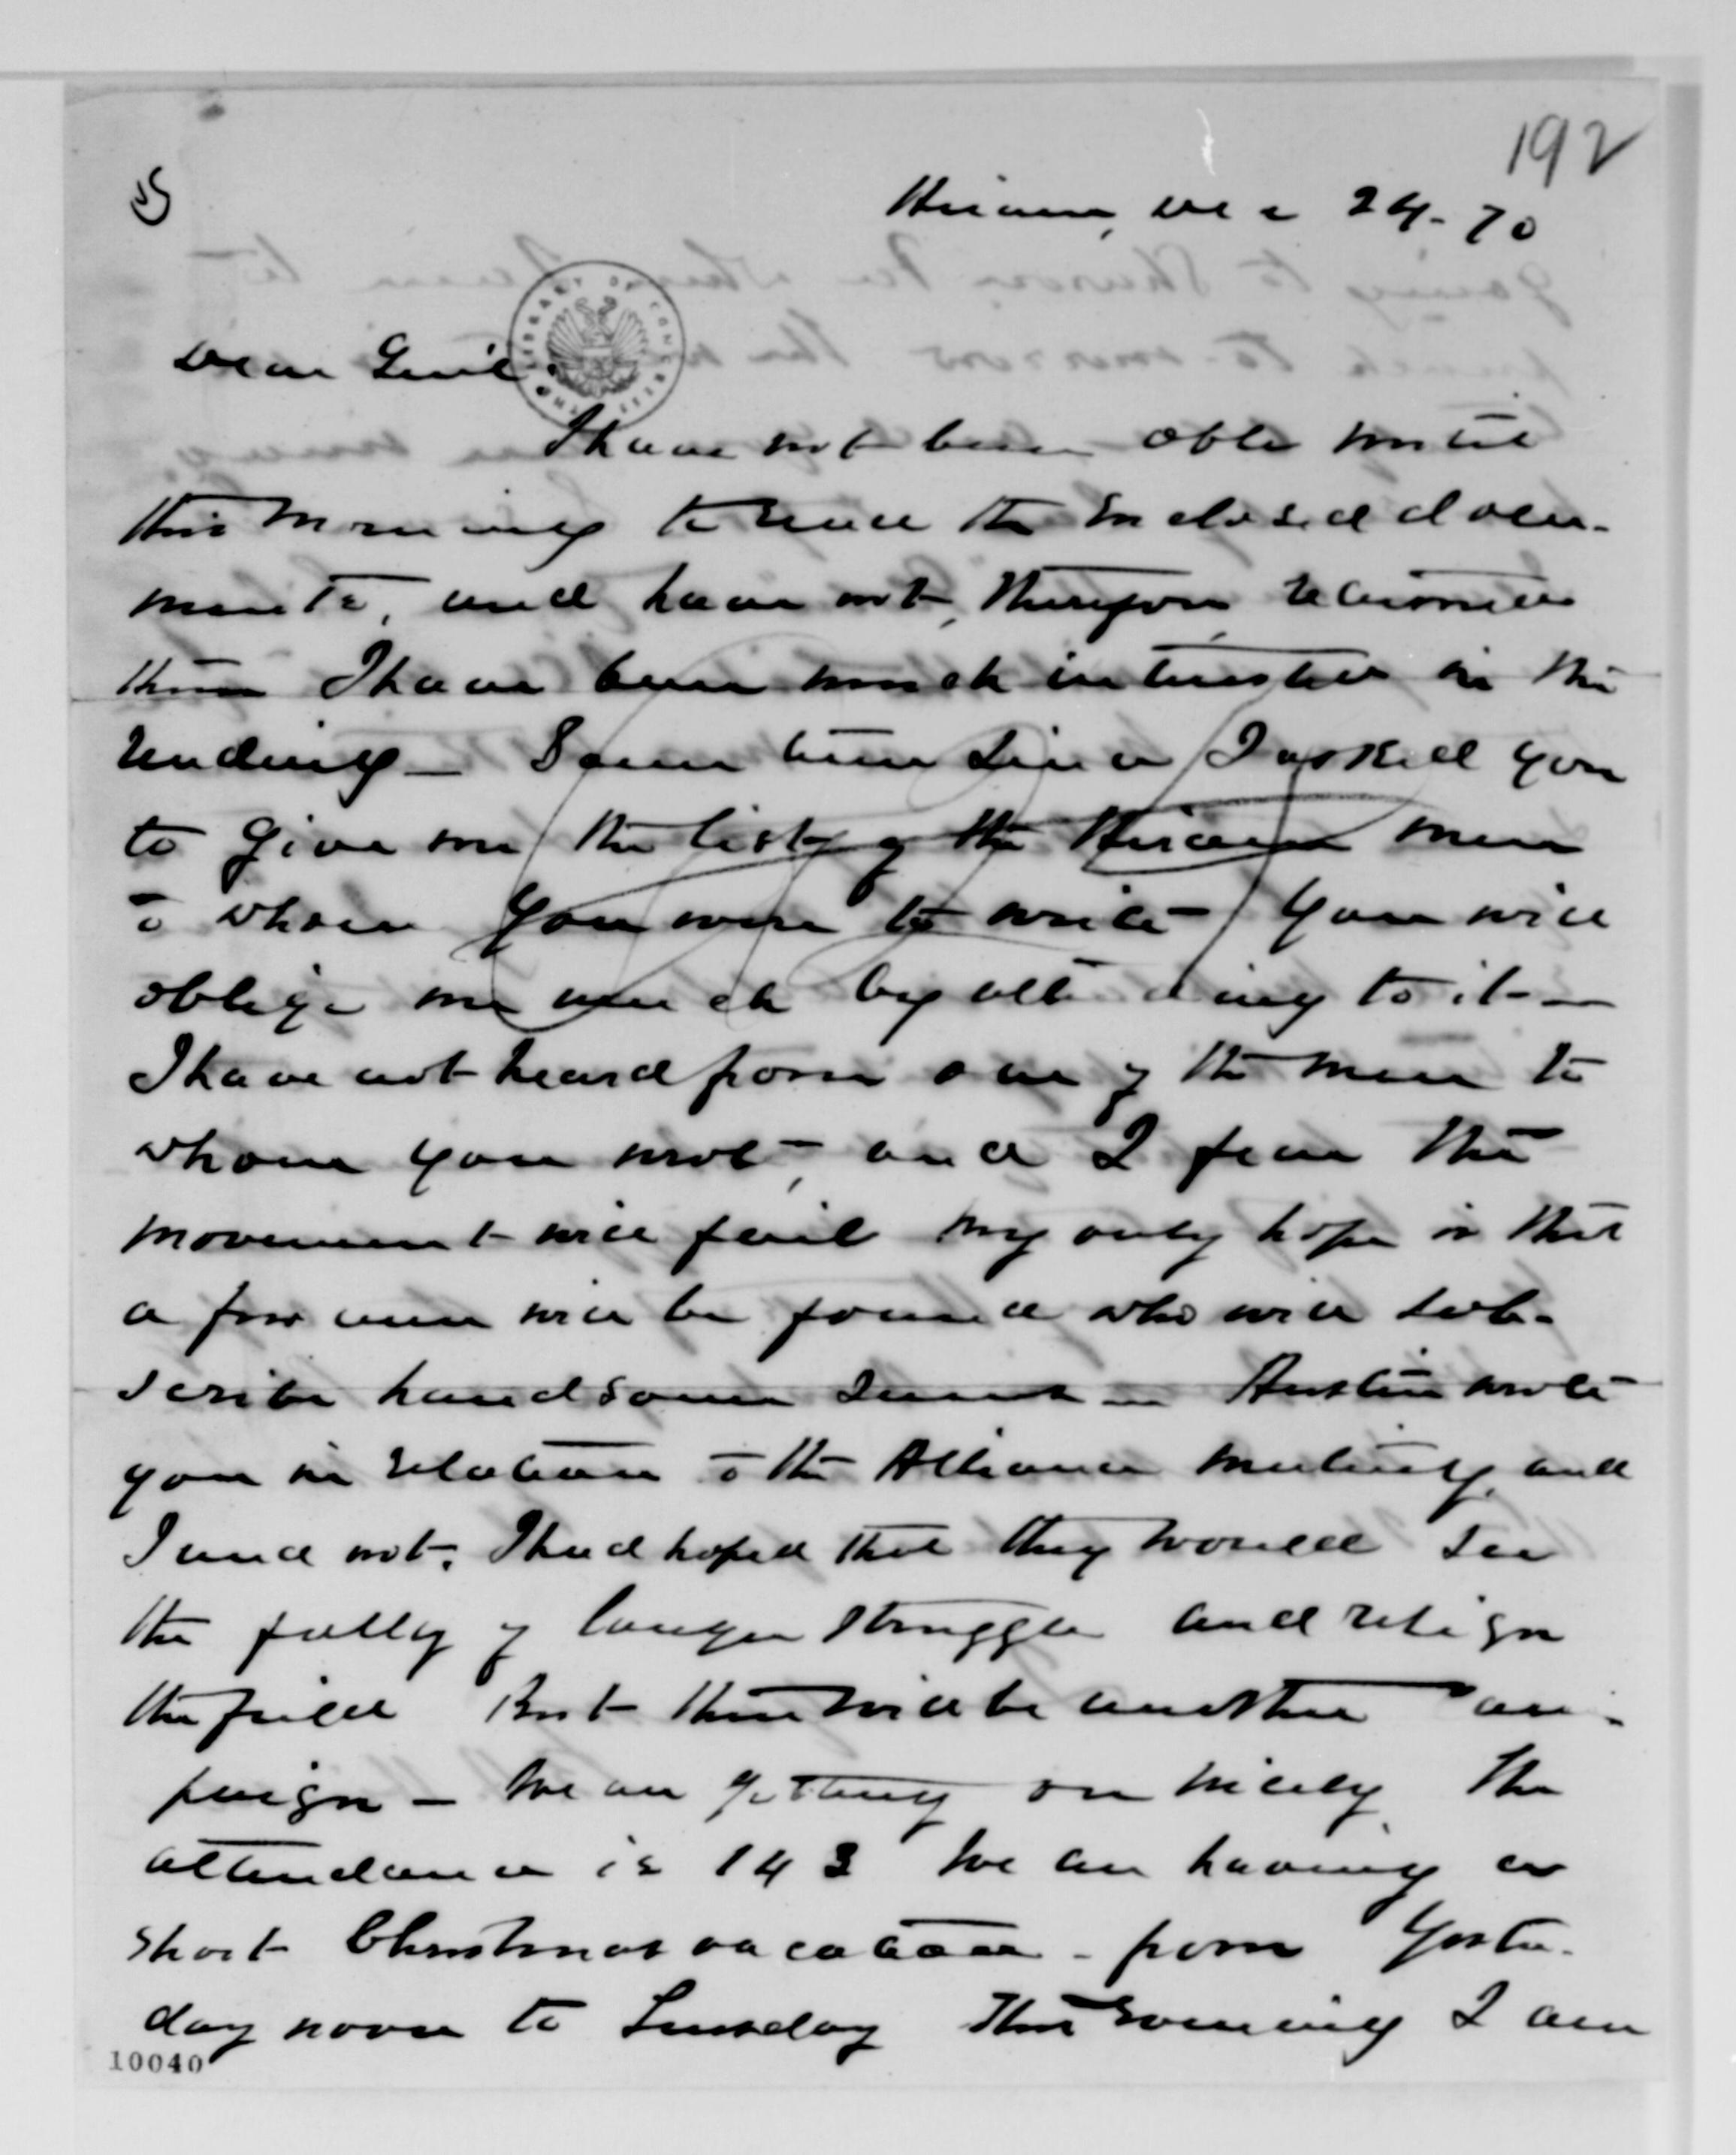 192
Hiram, Dec 24-70
LIBRARY OF CONGRESS
Dear Gen'l.
I have not been able until
this morning to read the inclosed docu-
ments, and have not, therefore returned
them I have been much interested in the
reading - Some time since I asked you
to give me the list of the Hiram men
to whom you were to write - You will
oblige me much by attending to it -
I have not heard from one of the men to
whom you wrote, and I fear the
movement will fail My only hope is that
a few men will be found who will sub-
scribe handsome sums - Austin wrote
you in relation to the Alliance meeting, and
I need not. I had hoped that they would see
the folly of longer struggle and resign
the field But there will be another cam-
paign - We are getting on nicely. The
attendance is 143 We are having a
short Christmas vacation - from yester-
day noon to Tuesday This evening I am
10040